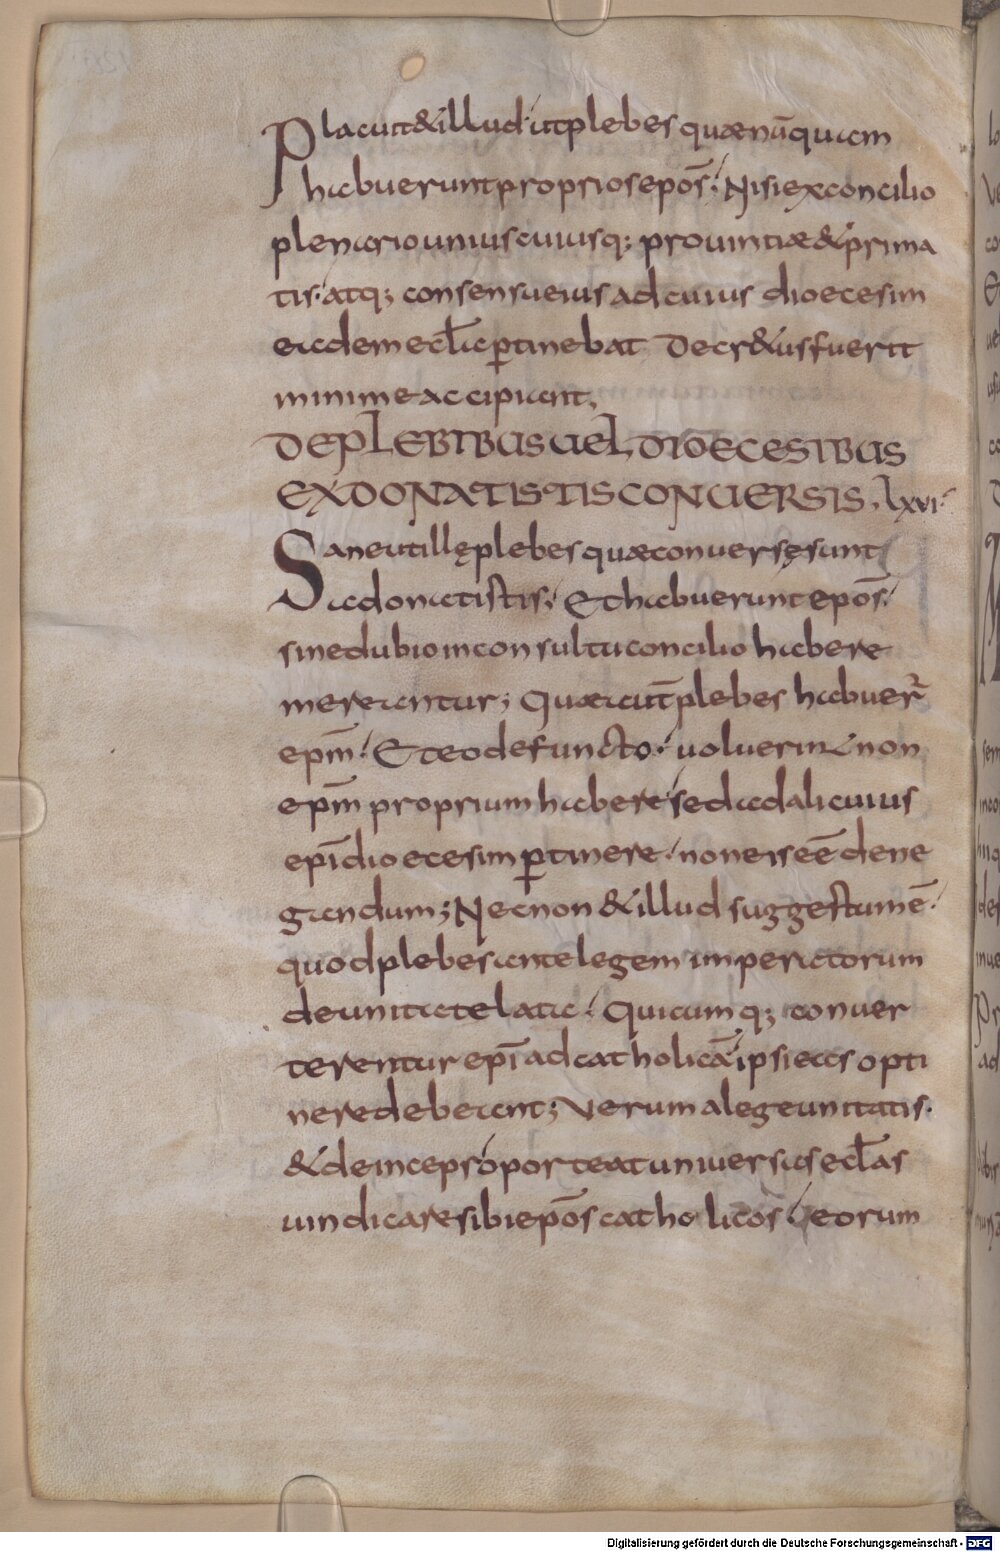 Placuit & illud ut plebes quae nūquam
habuerunt proprios epōs; Nisi ex concilio
plenario uniuscuiusq; prouintiae & prima
tis. atq; consensu eius ad cuius dioecesim
eadem eclā ꝑtinebat Decr& us fuerit
minime accipiant,
DE PLEBIBUS UEL DIOECESIBUS
EX DONATISTIS CONUERSIS, lxvi
Sane ut illę plebes quae conuersę sunt
a donatistis; Et habuerunt epōs.
sine dubio inconsultu concilio habere
mereantur; Quae aut̄ plebes habuer̄
ep̄m. Et eo defuncto. uoluerint non
ep̄m proprium habere sed ad alicuius
epī dioecesim ꝑtinere. non eis eē dene
gandum; Nec non & illud suggestum ē.
quod plebes ante legem imperatorum
de unitate lata. Quicumq; conuer
terentur epī ad catholicā. ipsi eas opti
nere deberent; Verum a lege unitatis.
& deinceps oporteat uniuersas eclās
uindicare sibi epōs catholicos. eorum
Digitalisierung gefördert durch die Deutsche Forschungsgemeinschaft - DFG